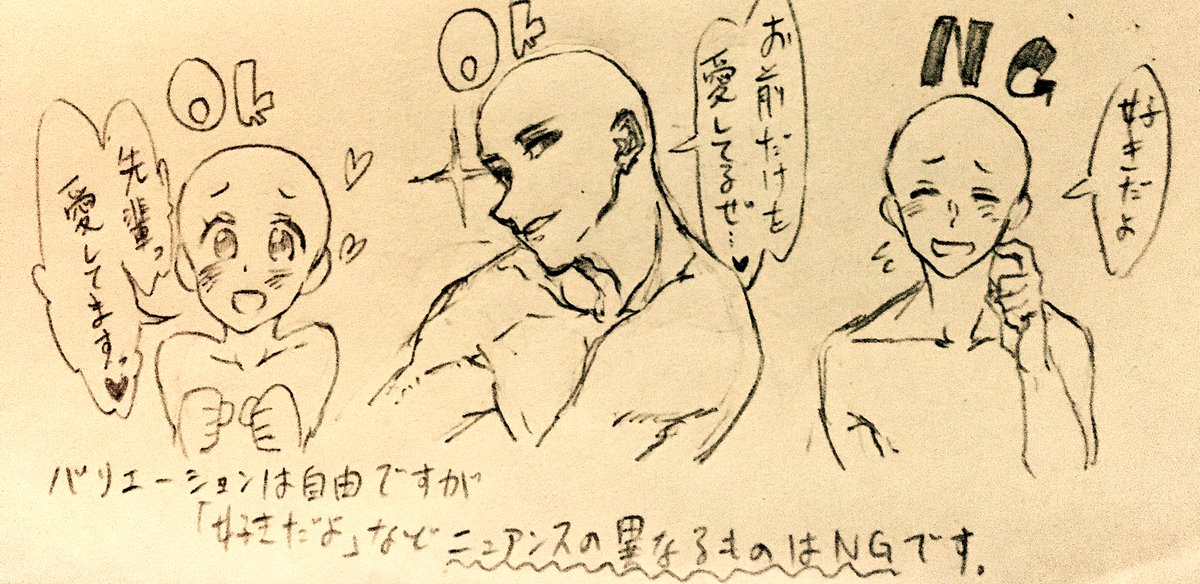 OK
先輩っ
愛してます。♥
OK
お前だけを
愛してるぜ…♥
NG
好きだよ
バリエーションは自由ですが
「好きだよ」など ニュアンスの異なるものはNGです。